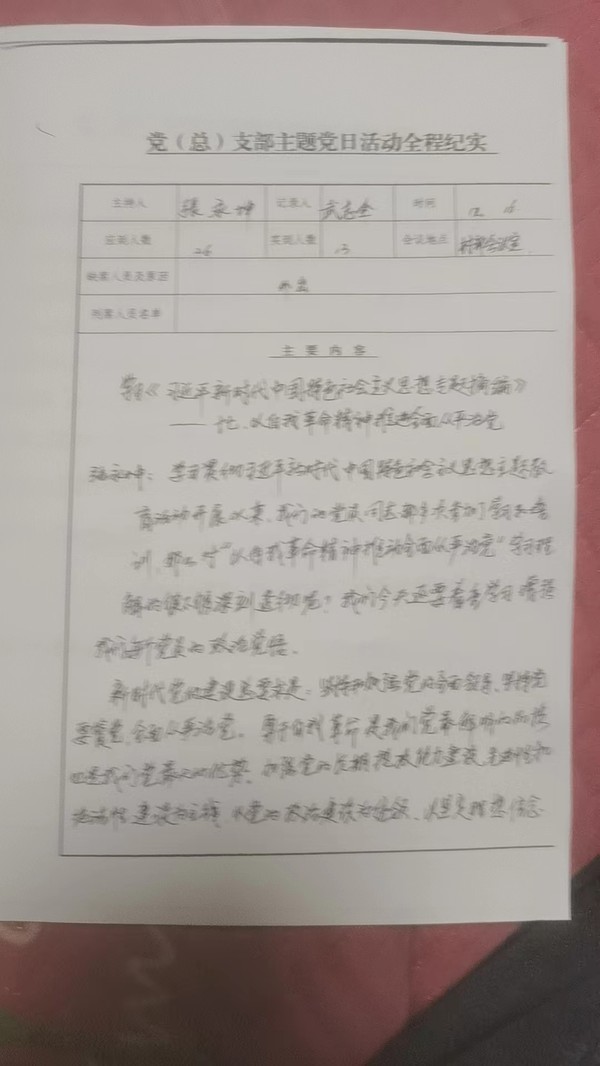 党（总）支部主题党日活动全程纪实
主持人 張永坤 记录人 武志全 时间 12 16
应到人数 26 实到人数 13 会议地点 村部会议室
缺席人员及原因 外出
列席人员名单
主要内容
学习《习近平新时代中国特色社会主义思想专题摘编》
—— 十七、以自我革命精神推进全面从严治党
张永坤：学习贯彻习近平新时代中国特色社会主义思想主题教
育活动开展以来，我们的党员同志都多次参加了学习和培
训，那么对“以自我革命精神推动全面从严治党”学习理
解的
我们今天还要着重学习
我们每个党员的政治觉悟。
新时代党的建设总要求是：坚持和加强党的全面领导，坚持党
要管党、全面从严治党。勇于自我革命是我们党最鲜明的品格
也是我们党最大的优势。加强党的长期执政能力建设、先进性和
纯洁性建设为主线，以党的政治建设为统领，以坚定理想信念